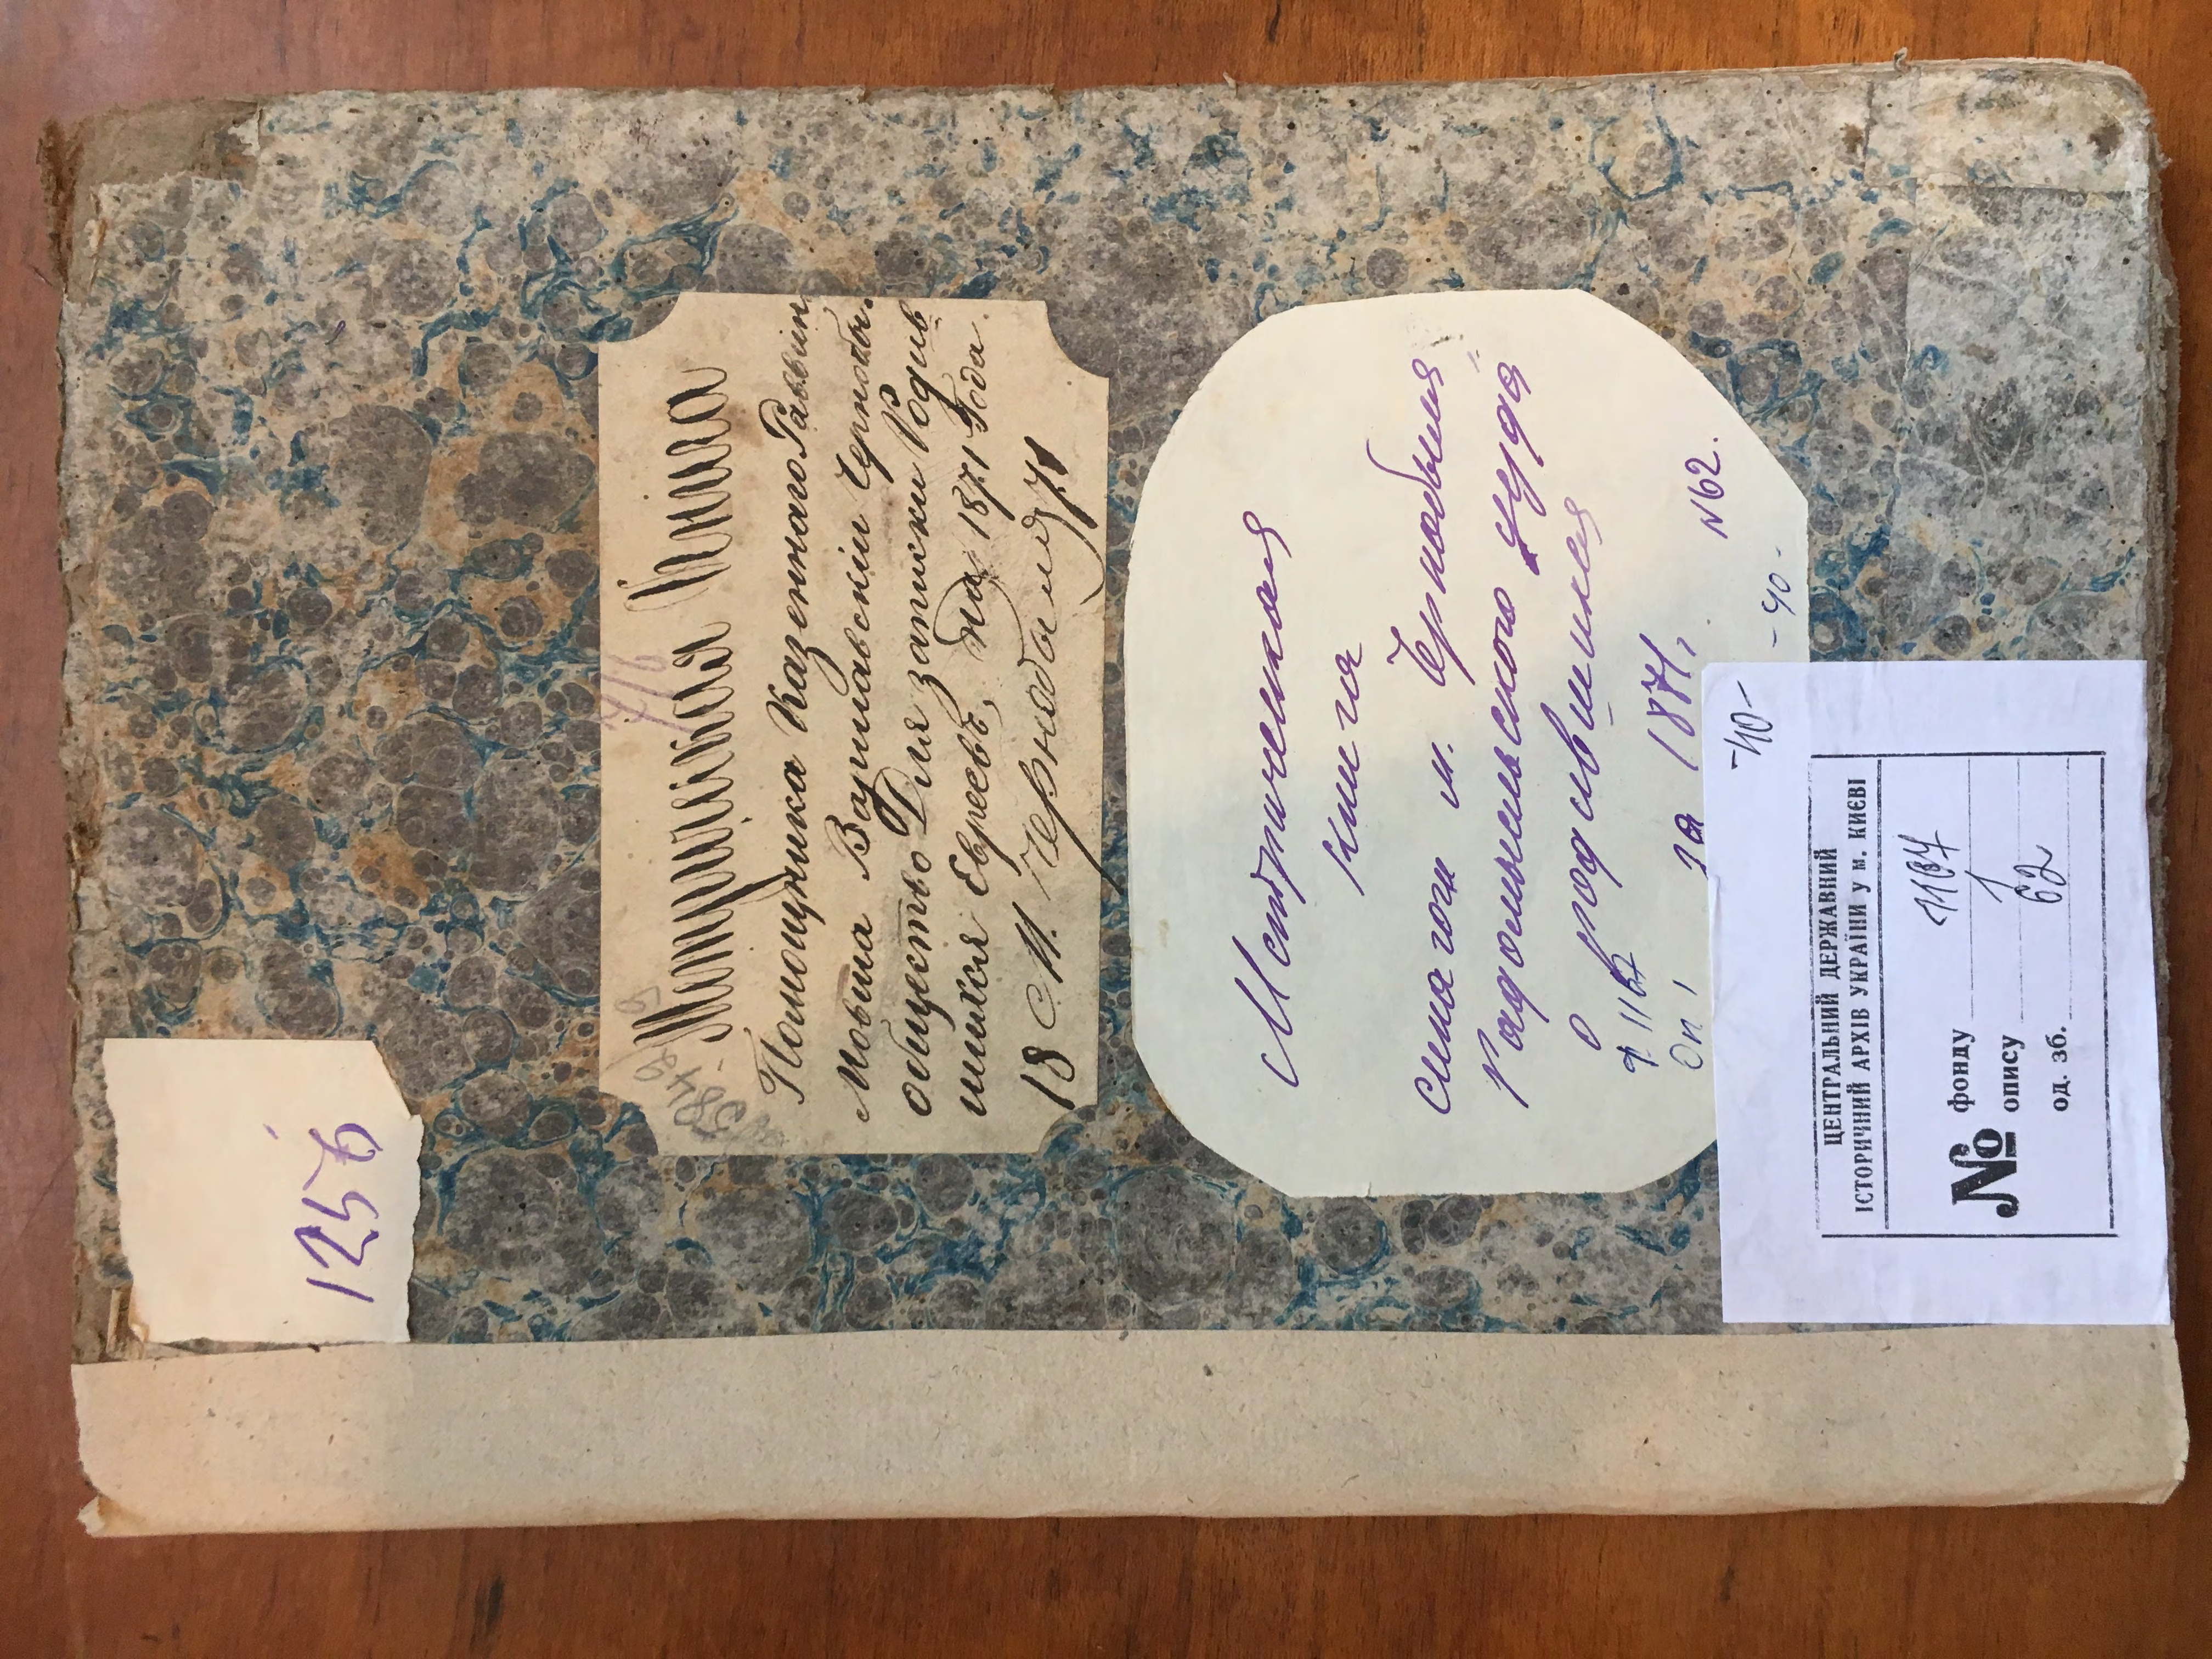 1256
Метрическая Книга
Помощника Казеннаго Раввин
Мовша Варшавскiи Чернобы.
общество Для записки Родив
шихся Евреевъ, на 1871 Года.
18 с. М. Чернобыль 71
Метрическая
книга
синагоги м. Чернобыля
Радомысльского уезда
о родившихся
за 1871 г.
ф 1167
Оп 1
N 62.
-40-
-40-
ЦЕНТРАЛЬНИЙ ДЕРЖАВНИЙ
ІСТОРИЧНИЙ АРХІВ УКРАЇНИ У м. КИЄВІ
№ фонду 1167
опису 1
од. зб. 62